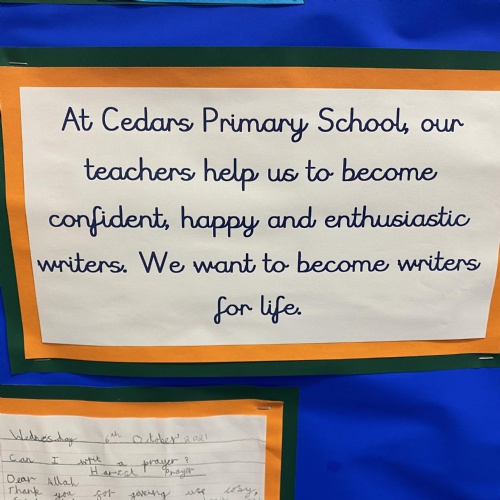 At Cedars Primary School, our
teachers help us to become
confident, happy and enthusiastic
writers. We want to become writers
for life.
Wednesday 6th October 2021
Can I writ a prayer?
Harest Prayer
Dear Allah
Thank you for